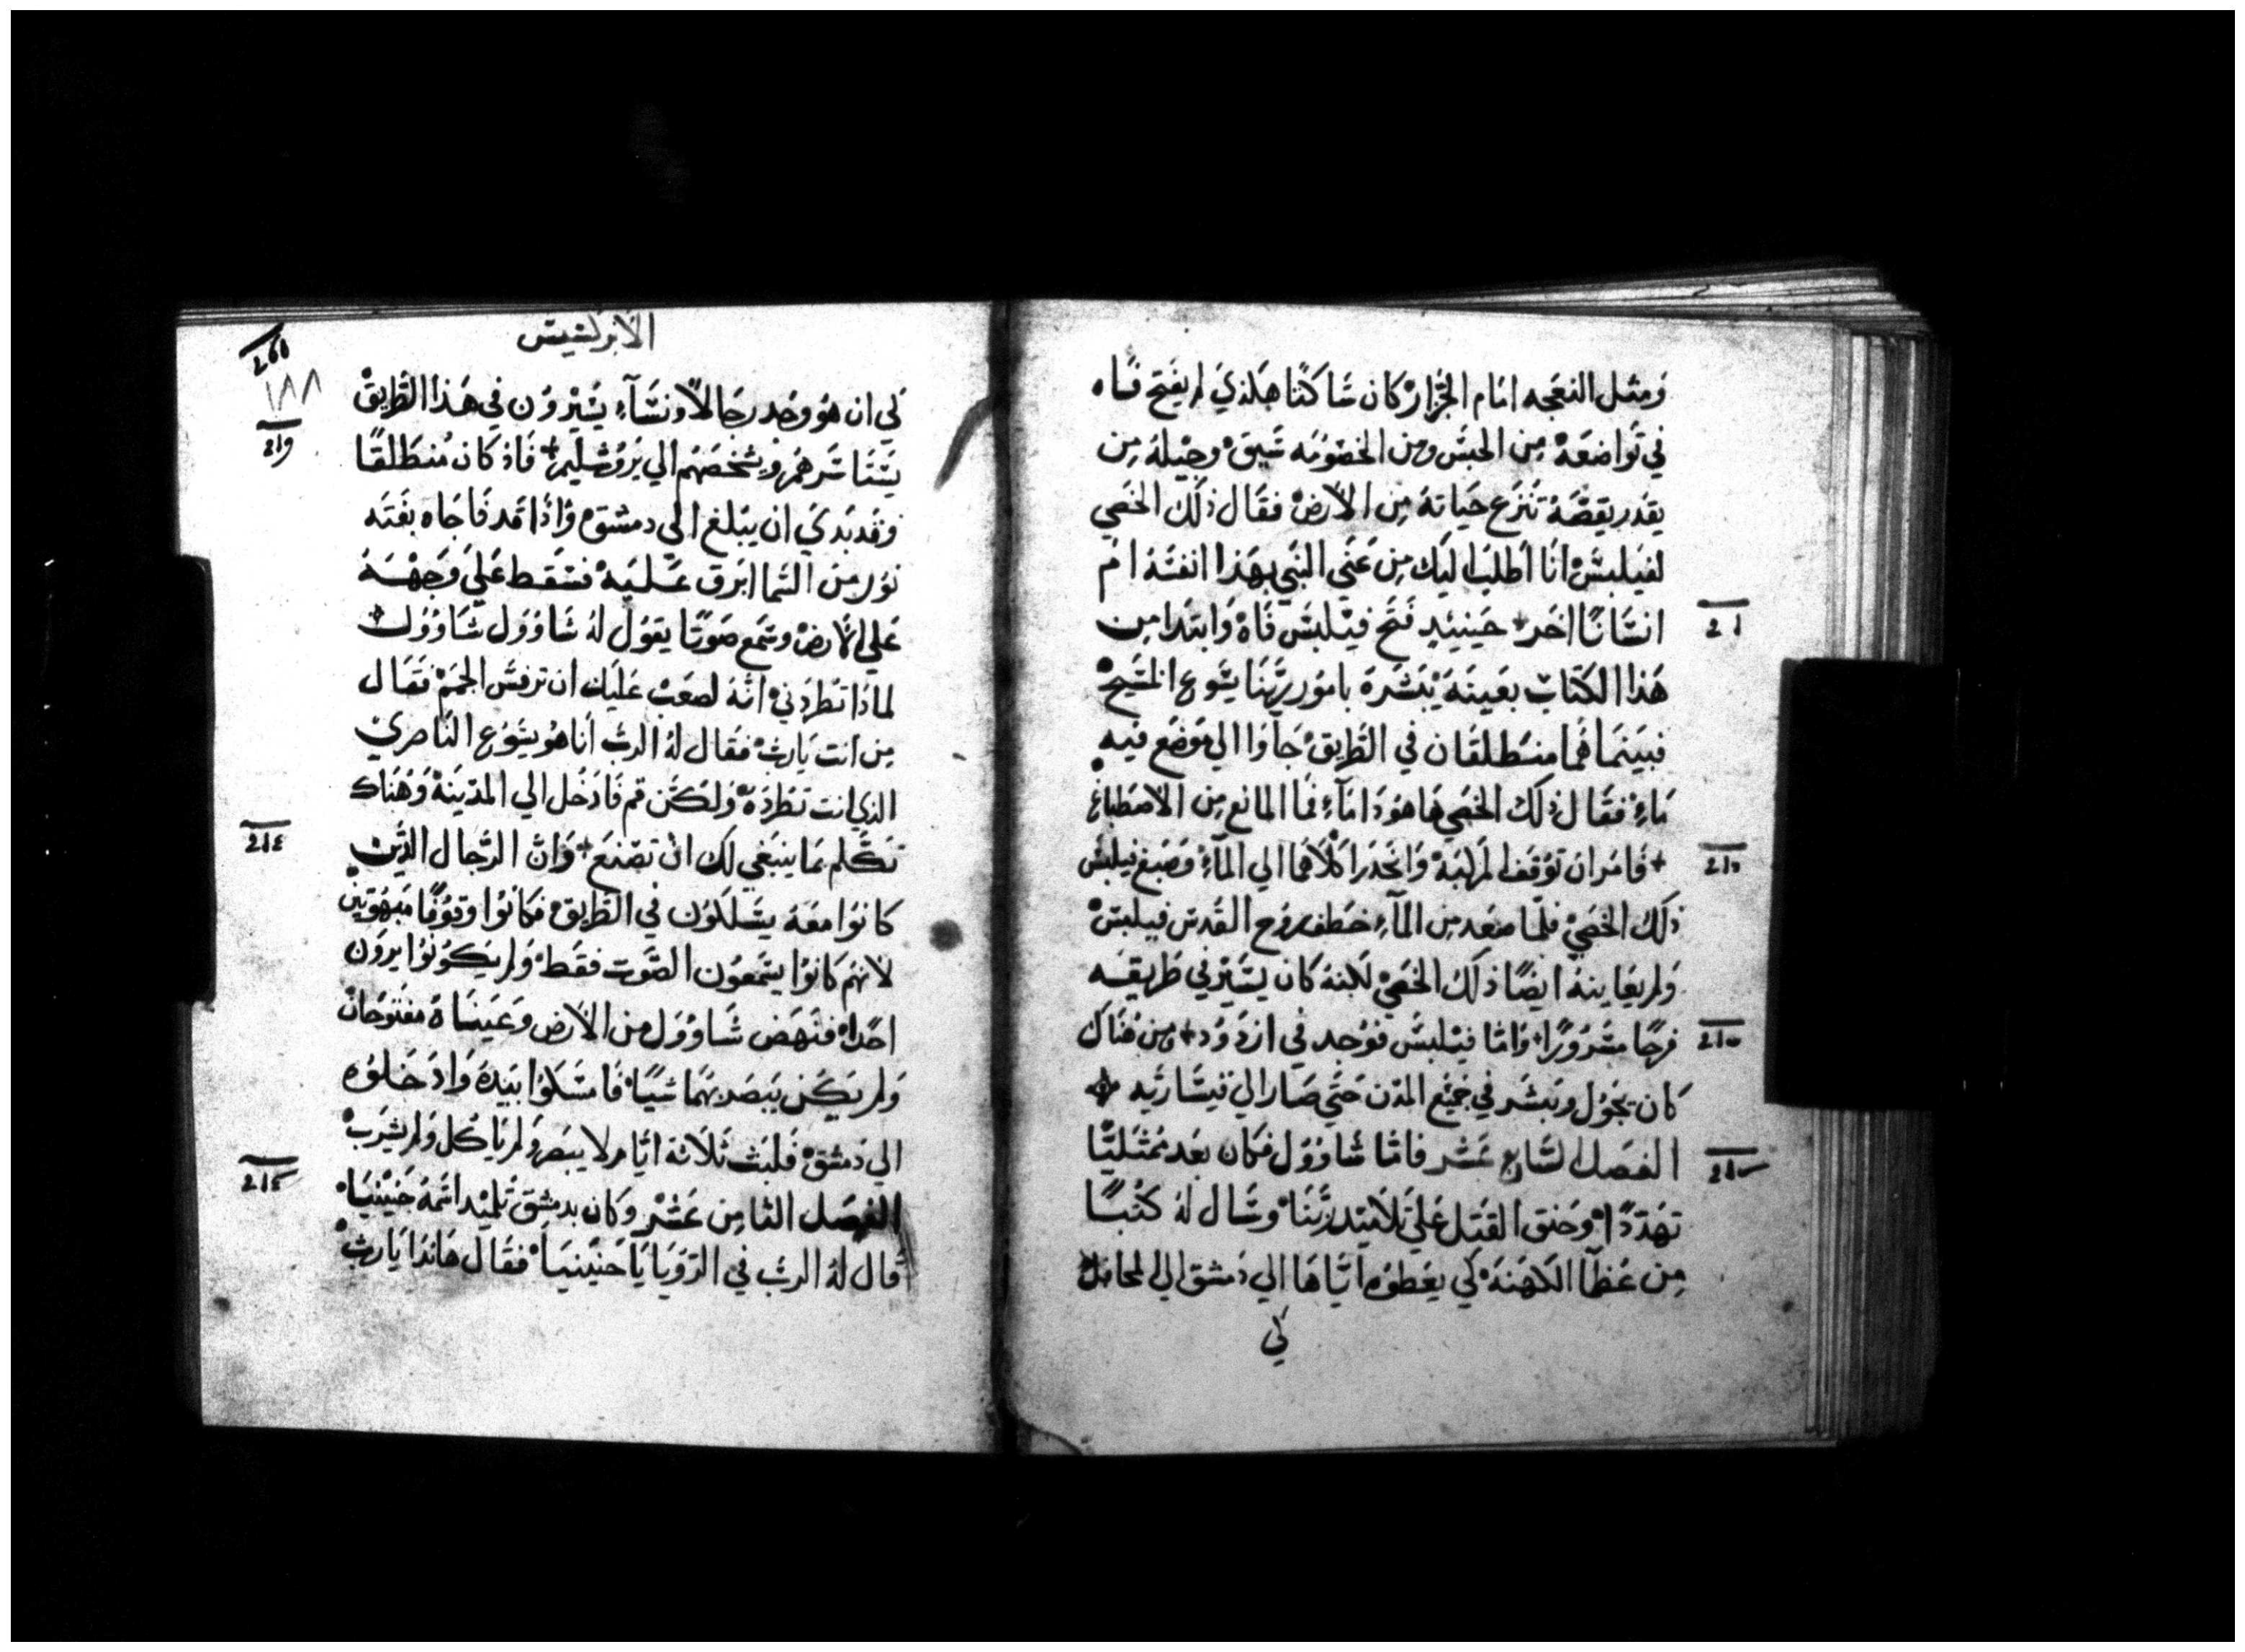 ومثل النعجه امام الجزار كان ساكتا هكذي لم يفتح فاه
في تواضعه من الحبس ومن الخصومه سيق وجيله من
يقدر يقصه تنزع حياته من الارض فقال ذلك الخصي
لفيلبس انا اطلب اليك من عني النبي بهذا انفسه ام
انسانا اخر حينيذ فتح فيلبس فاه وابتدا من
هذا الكتاب بعينه يبشره بامور ربنا يسوع المسيح
فبينما هما منطلقان في الطريق جاوا الي موضع فيه
ماء فقال ذلك الخصي ها هوذا ماء فما المانع من الاصطباغ
فامر ان توقف المركبه وانحدرا كلاهما الي الماء وصبغ فيلبس
ذلك الخصي فلما صعد من الماء خطف روح القدس فيلبس
ولم يعاينه ايضا ذلك الخصي لكنه كان يسير في طريقه
فرحا مسرورا واما فيلبس فوجد في ازدود ومن هناك
كان يجول ويبشر في جميع المدن حتي صار الي قيساريه
الفصل السابع عشر فاما شاوول فكان بعد ممتليا
تهددا وحنق القتل علي تلاميذ ربنا وسال له كتبا
من عظما الكهنه كي يعطوه اياها الي دمشق الي المحافل
كي
الابركسيس
١٨٨
كي ان هو وجد رجالا ونساء يسيرون في هذا الطريق
يستاسرهم ويشخصهم الي يروشليم فاذ كان منطلقا
وقد بدي ان يبلغ الي دمشق واذا قد فاجاه بغته
نور من السما ابرق عليه فسقط علي وجهه
علي الارض وسمع صوتا يقول له شاوول شاوول
لماذا تطردني انه لصعب عليك ان ترفس الجم فقال
من انت يارب فقال له الرب انا هو يسوع الناصري
الذي انت تطرده ولكن قم فادخل الي المدينه وهناك
تكلم بما ينبغي لك ان تصنع وان الرجال الذين
كانوا معه يسلكون في الطريق فكانوا وقوفا مبهوتين
لانهم كانوا يسمعون الصوت فقط ولم يكونوا يرون
احدا فنهض شاوول من الارض وعيناه مفتوحان
ولم يكن يبصر بهما شيا فامسكوا بيده وادخلوه
الي دمشق فلبث ثلاثة ايام لا يبصر ولم ياكل ولم يشرب
الفصل الثامن عشر وكان بدمشق تلميذ اسمه حنينيا
قال له الرب في الرويا يا حنينيا فقال هانذا يارب